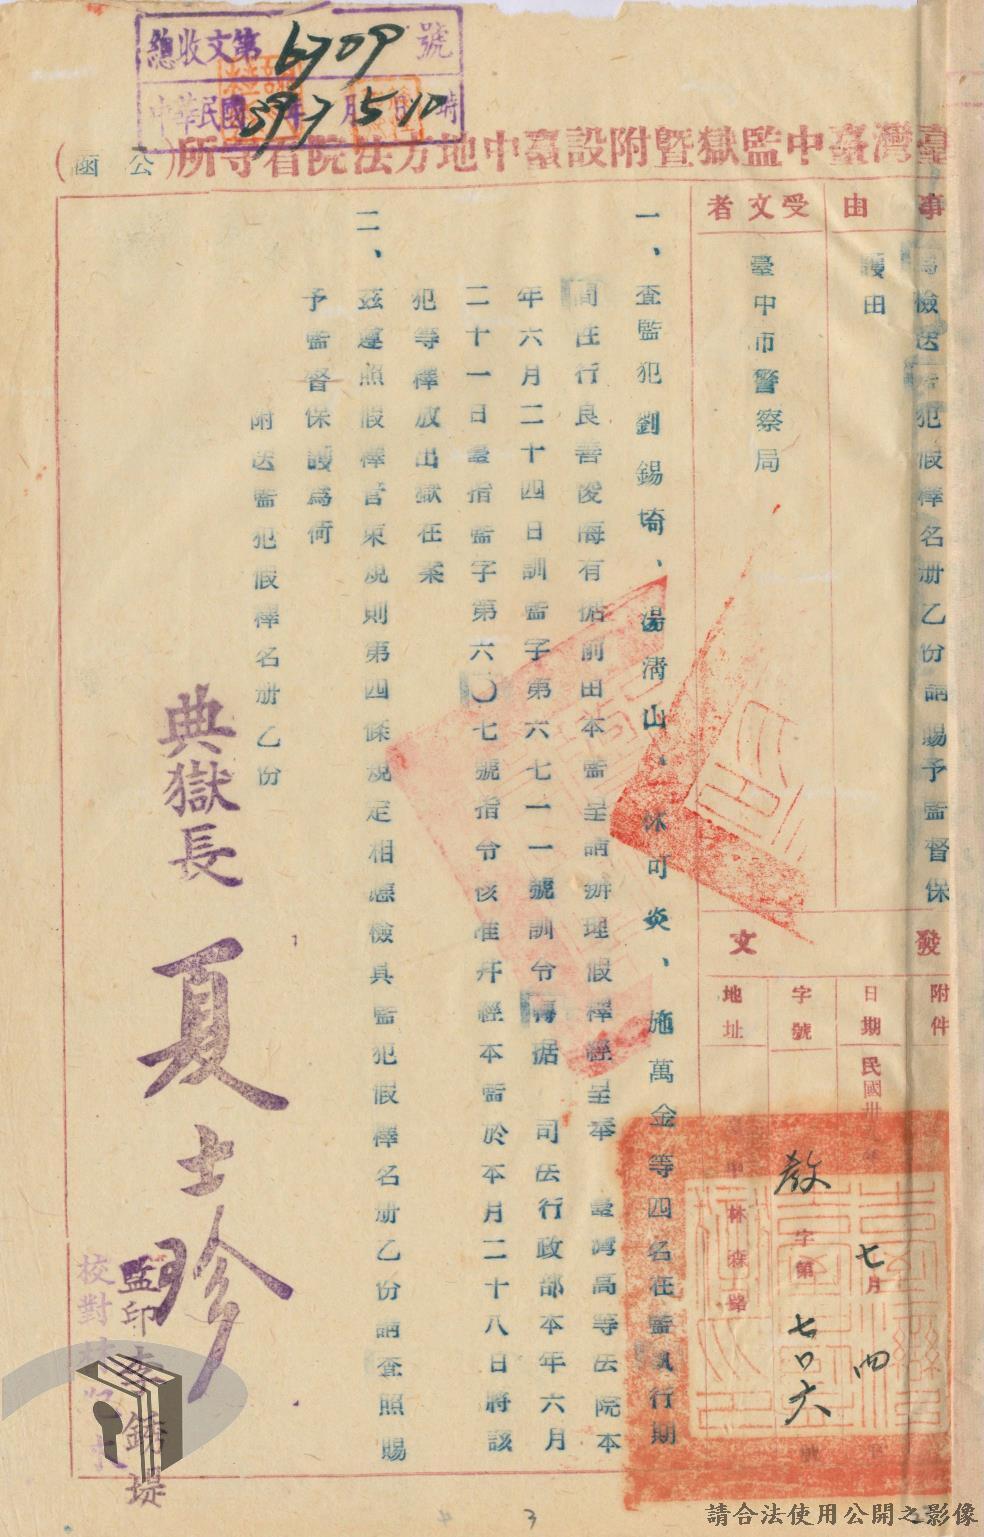 總收文第6709號
中華民國39年7月5日10時
臺灣臺中監獄暨附設臺中地方法院看守所(公函)
事由
為檢送監犯假釋名册乙份請賜予監督保
護由
受文者
臺中市警察局
發文
附件
日期
民國卅九年七月四
字號
教字第七〇六號
地址
臺中林森路
一、查監犯劉錫埼、湯淸山、林可炎、施萬金等四名在監執行期
間性行良善悛悔有据前由本監呈請辦理假釋經呈奉 臺灣高等法院本
年六月二十四日訓監字第六七一一號訓令轉据 司法行政部本年六月
二十一日臺指監字第六〇七號指令核准幷經本監於本月二十八日將該
犯等釋放出獄在案
二、茲遵照假釋管束規則第四條規定相應檢具監犯假釋名册乙份請查照賜
予監督保護爲荷
附送監犯假釋名册乙份
典獄長 夏士珍
監印李錦堤
校對
3
請合法使用公開之影像